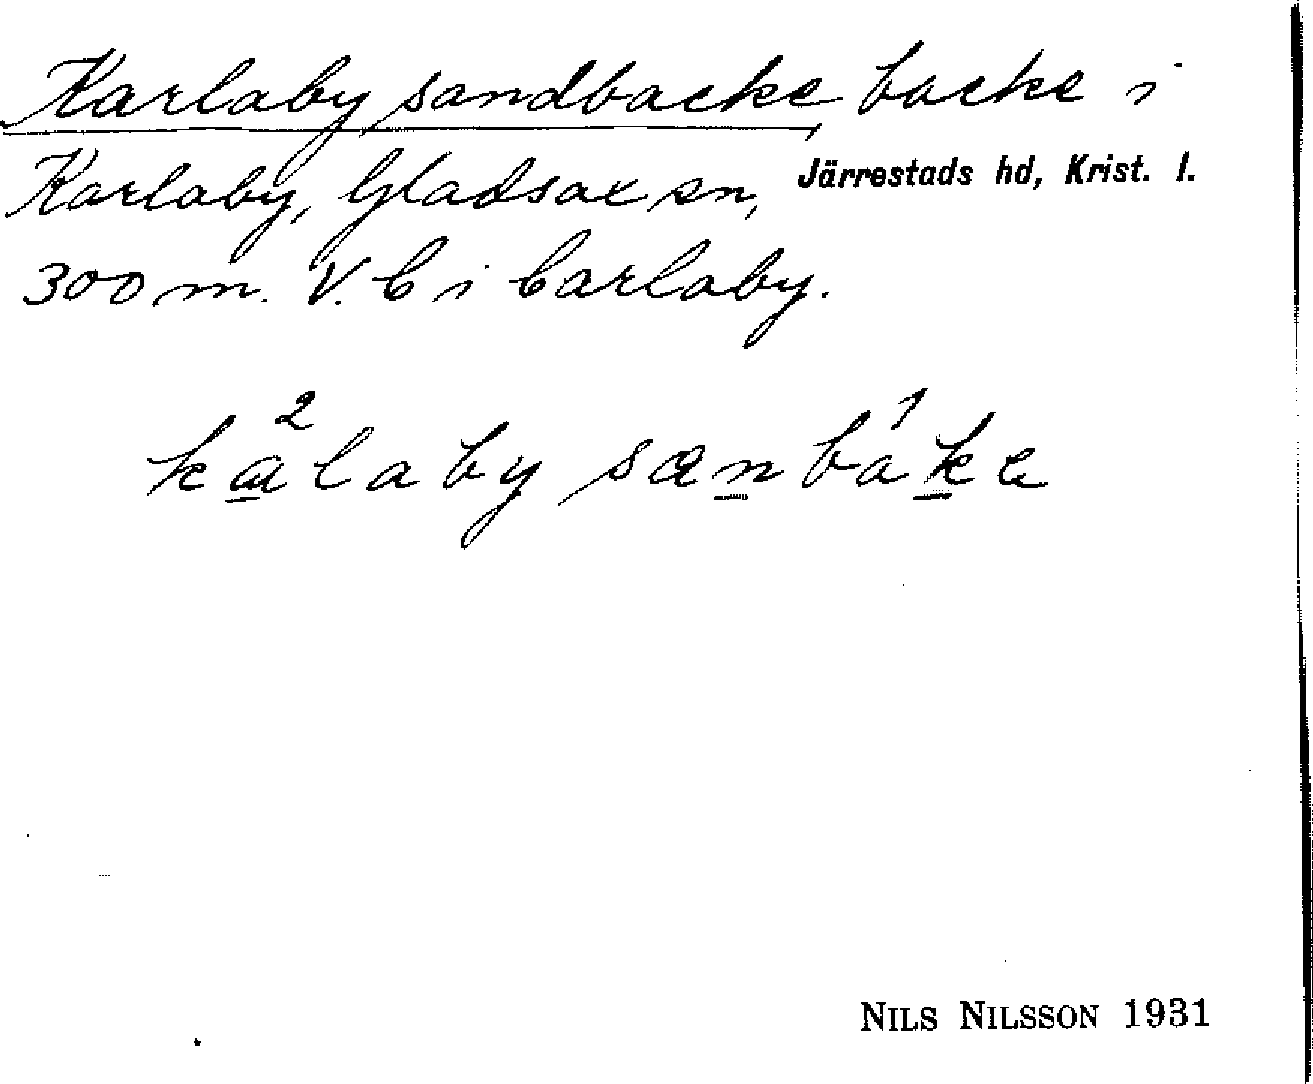 Karlaby sandbacke, backe i
Karlaby, Gladsax sn, Järrestads hd, Krist. l.
300 m. V. C i Carlaby.
ka²laby sænba¹ke
NILS NILSSON 1931